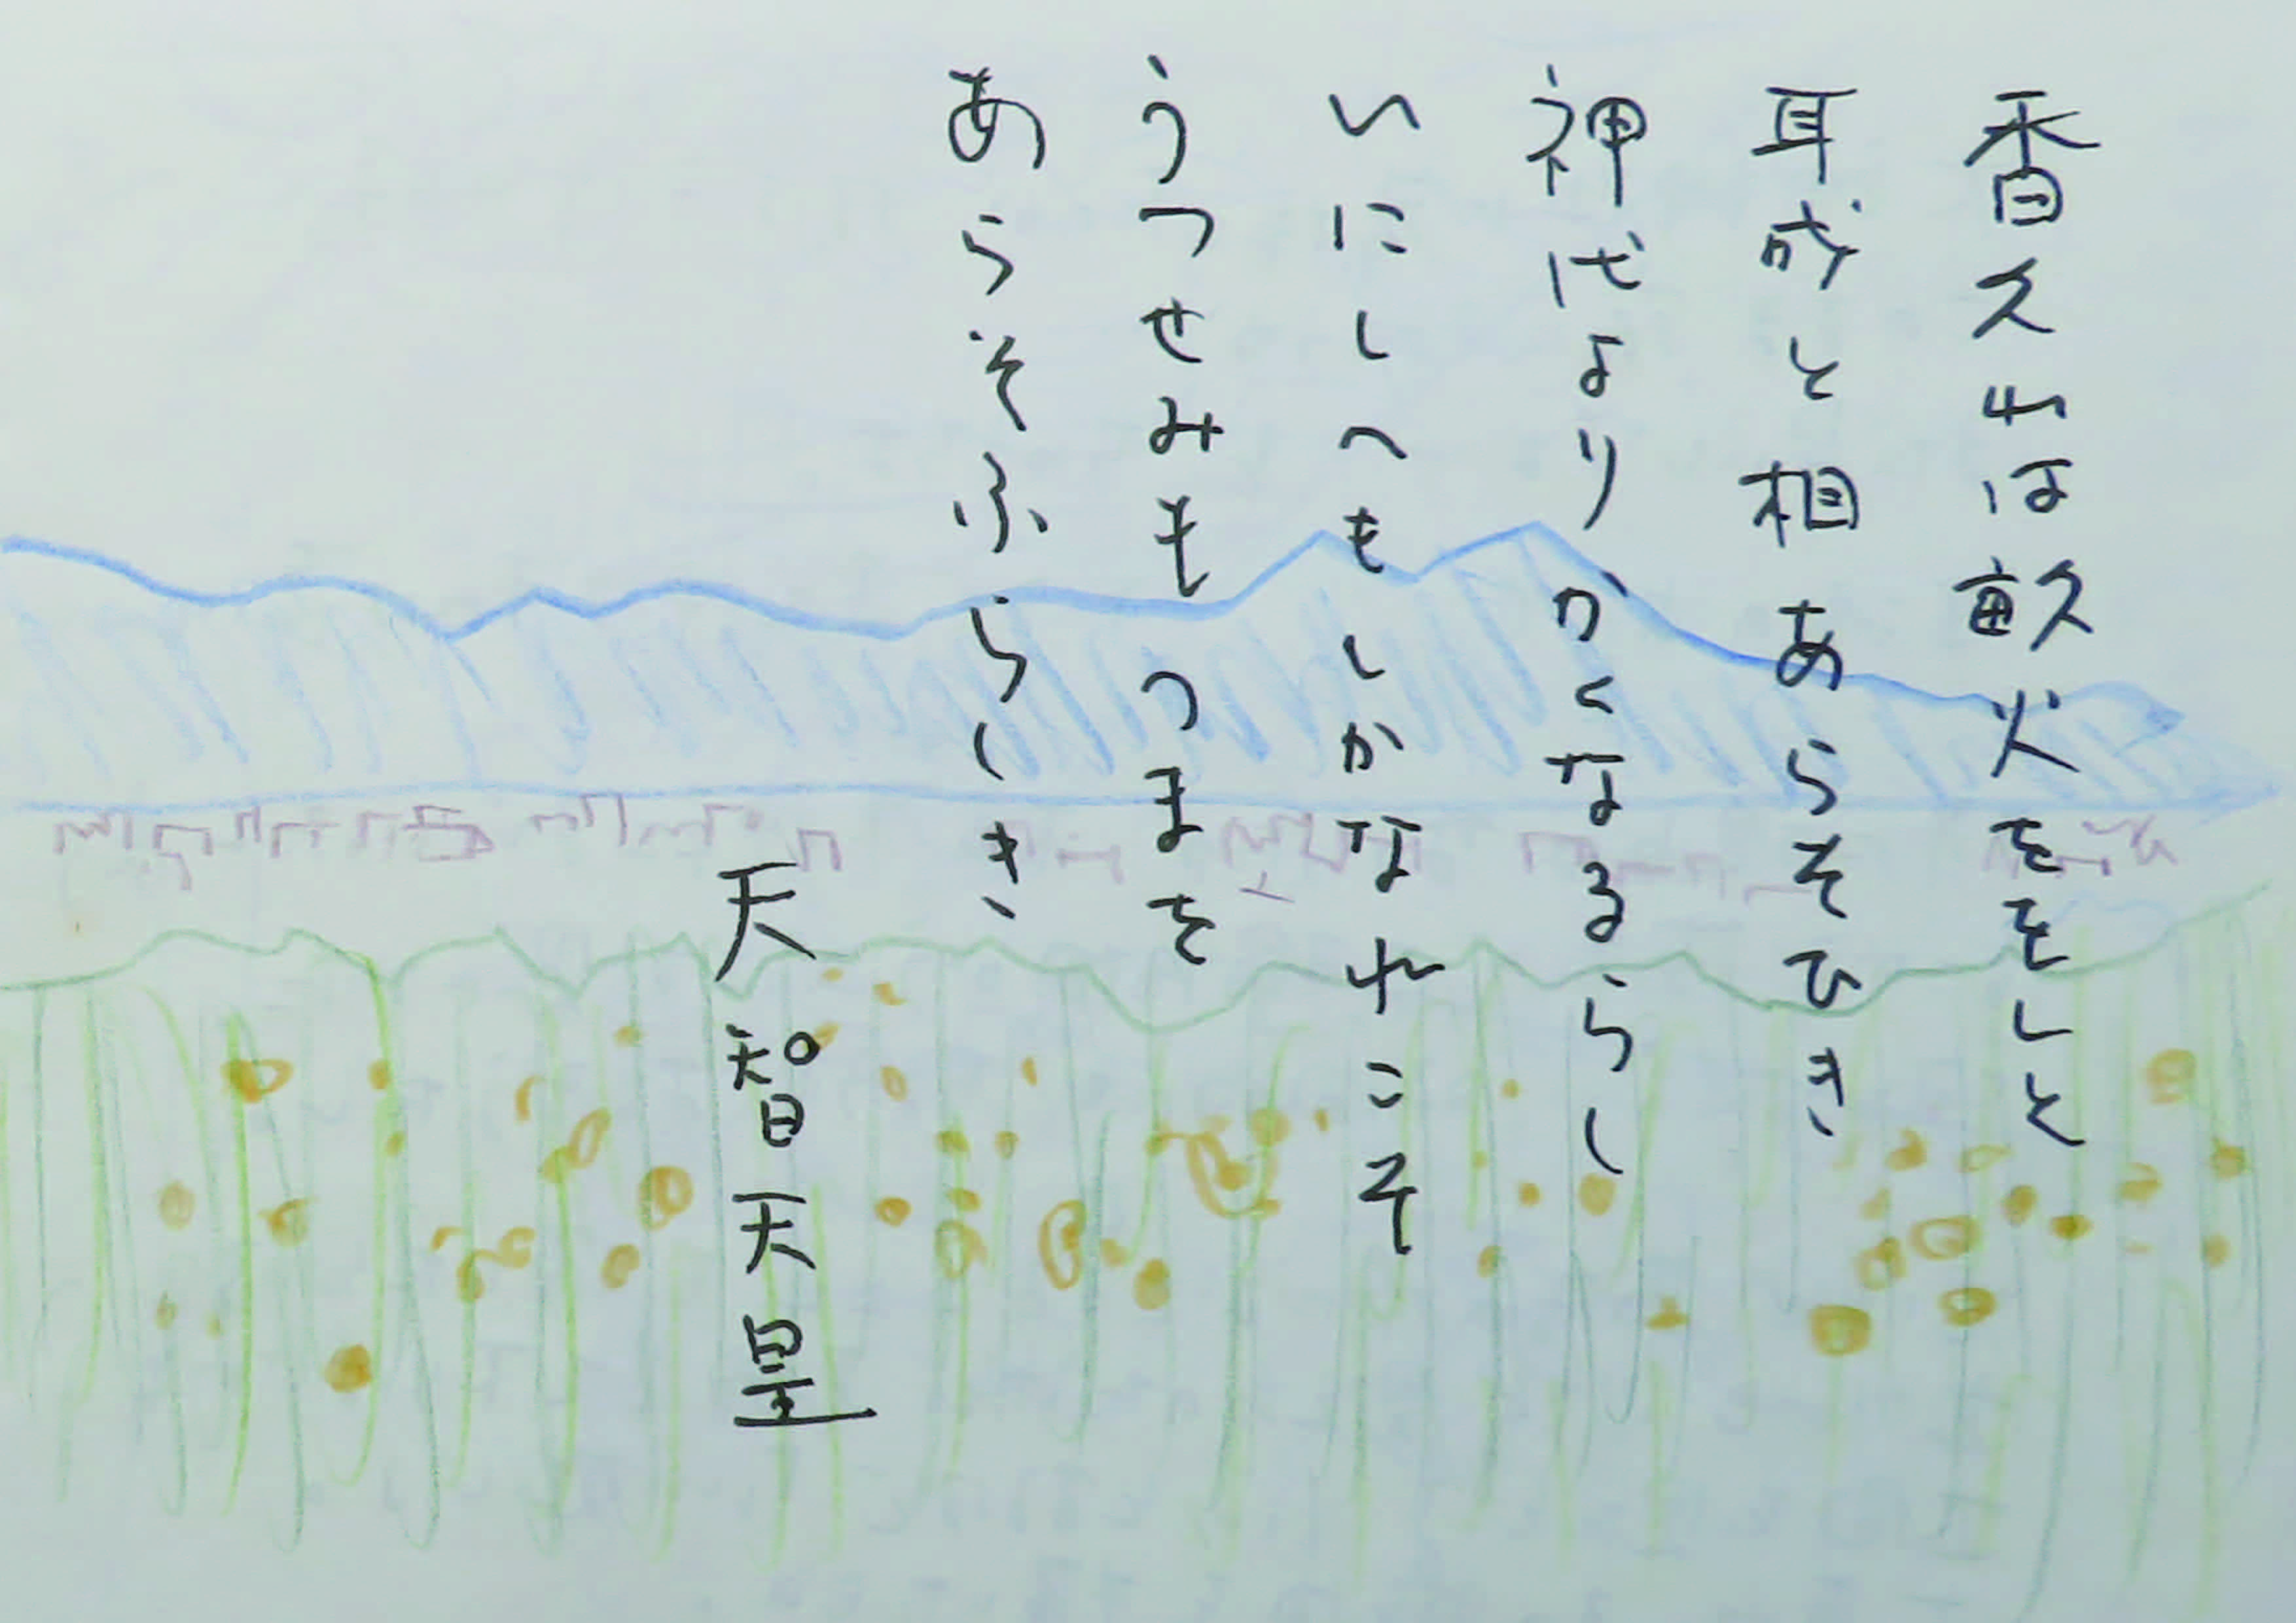 香久山は畝火ををしと
耳成と相あらそひき
神代より かくなるらし
いにしへも しかなれこそ
うつせみも つまを
あらそふらしき
天智天皇